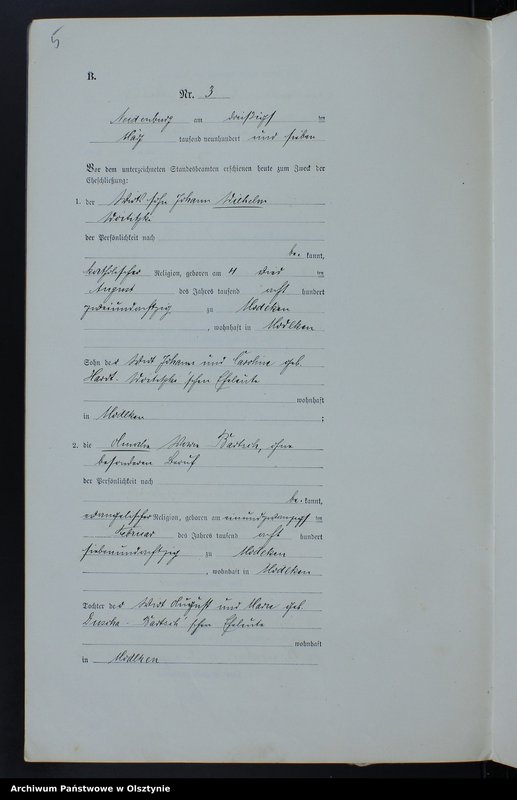 5
B.
Nr. 3
Neidenburg am dreißigsten
März tausend neunhundert und sieben
Vor dem unterzeichneten Standesbeamten erschienen heute zum Zweck der
Eheschließung:
1. der Wirtssohn Johann Wilhelm
der Persönlichkeit nach
be- kannt,
katholischer Religion, geboren am ten
August des Jahres tausend acht hundert
zweiundachtzig zu Modlken
, wohnhaft in Modlken
Sohn der Wirt Johann und Caroline geb.
schen Eheleute
wohnhaft
in Modlken ;
2. die Amalie Bartsch, ohne
besonderen Beruf
der Persönlichkeit nach
be- kannt,
evangelischer Religion, geboren am neunundzwanzigsten
Februar des Jahres tausend acht hundert
siebenundachtzig zu Modlken
, wohnhaft in Modlken
Tochter der Wirt August und Marie geb.
Bartsch'schen Eheleute
wohnhaft
in Modlken
Archiwum Państwowe w Olsztynie